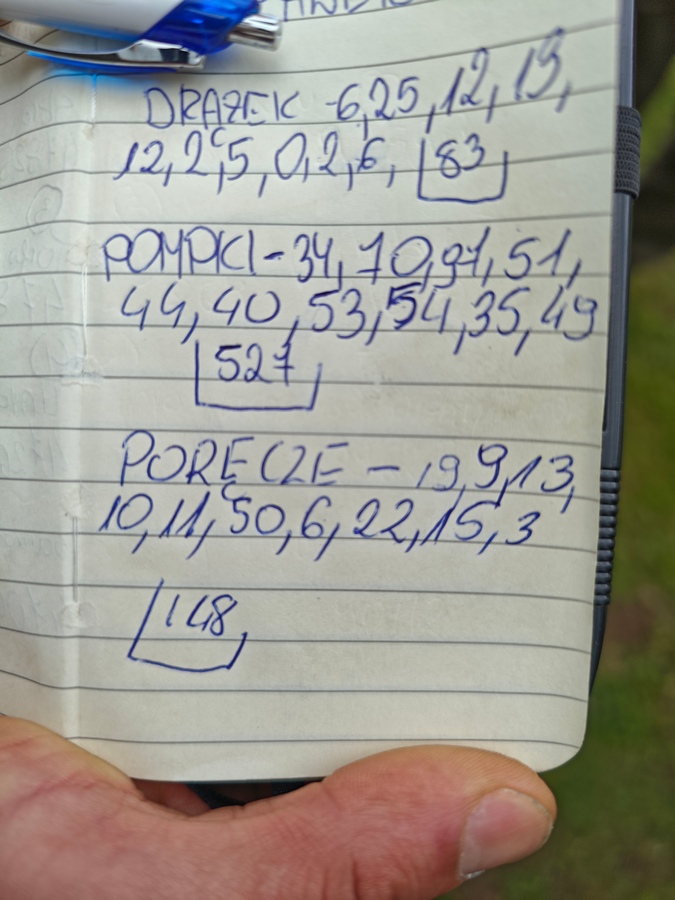 DRĄŻEK - 6, 25, 12, 13,
12, 2, 5, 0, 2, 6, 83
POMPKI - 34, 70, 97, 51,
44, 40, 53, 54, 35, 49
527
PORĘCZE - 19, 9, 13,
10, 11, 50, 6, 22, 15, 3
148